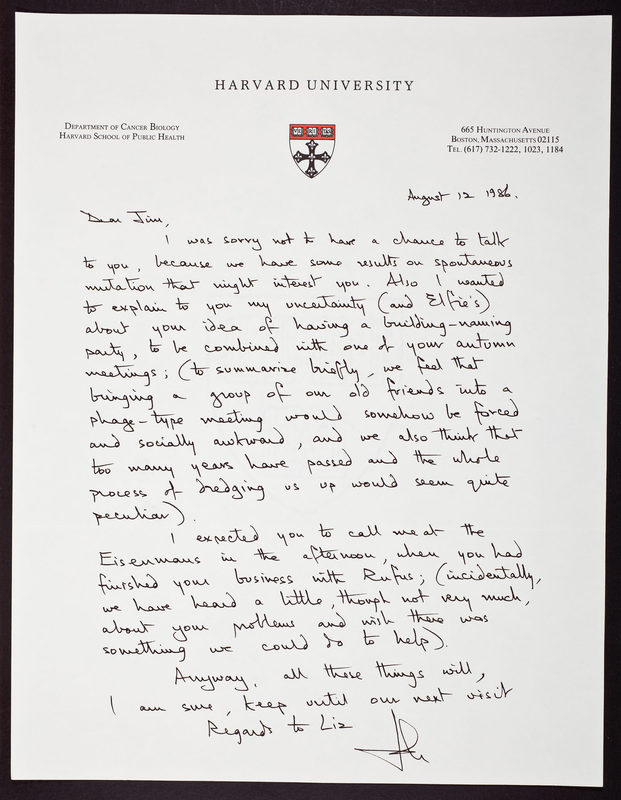 HARVARD UNIVERSITY
DEPARTMENT OF CANCER BIOLOGY
HARVARD SCHOOL OF PUBLIC HEALTH
665 HUNTINGTON AVENUE
BOSTON, MASSACHUSETTS 02115
TEL. (617) 732-1222, 1023, 1184
VE RI TAS
August 12 1986.
Dear Jim,
I was sorry not to have a chance to talk
to you, because we have some results on spontaneous
mutation that might interest you. Also I wanted
to explain to you my uncertainty (and Elfie's)
about your idea of having a building-naming
party, to be combined with one of your autumn
meetings; (to summarize briefly, we feel that
bringing a group of our old friends into a
phage-type meeting would somehow be forced
and socially awkward, and we also think that
too many years have passed and the whole
process of dredging us up would seem quite
peculiar).
I expected you to call me at the
Eisenmans in the afternoon, when you had
finished your business with Rufus; (incidentally,
we have heard a little, though not very much,
about your problems and wish there was
something we could do to help).
Anyway, all these things will,
I am sure, keep until our next visit
Regards to Liz